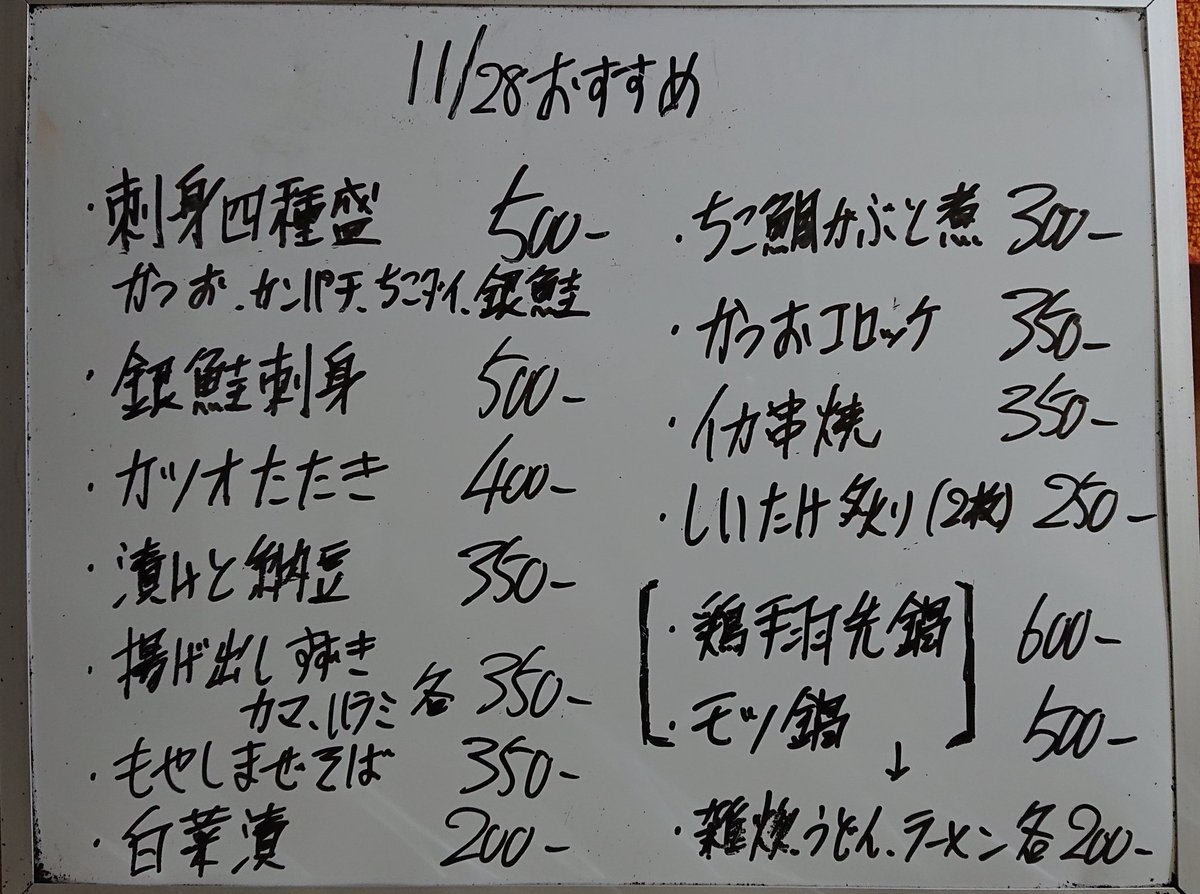 11/28おすすめ
・刺身四種盛 500-
かつお、カンパチ、ちこダイ、銀鮭
・銀鮭刺身 500-
・カツオたたき 400-
・漬けと納豆 350-
・揚げ出しすずき
カマ、ハラミ 各 350-
・もやしまぜそば 350-
・白菜漬 200-
・ちこ鯛かぶと煮 300-
・かつおコロッケ 350-
・イカ串焼 350-
・しいたけ炙り(2枚) 250-
・鶏手羽先鍋 600-
・モツ鍋 500-
↓
・雑炊、うどん、ラーメン 各200-